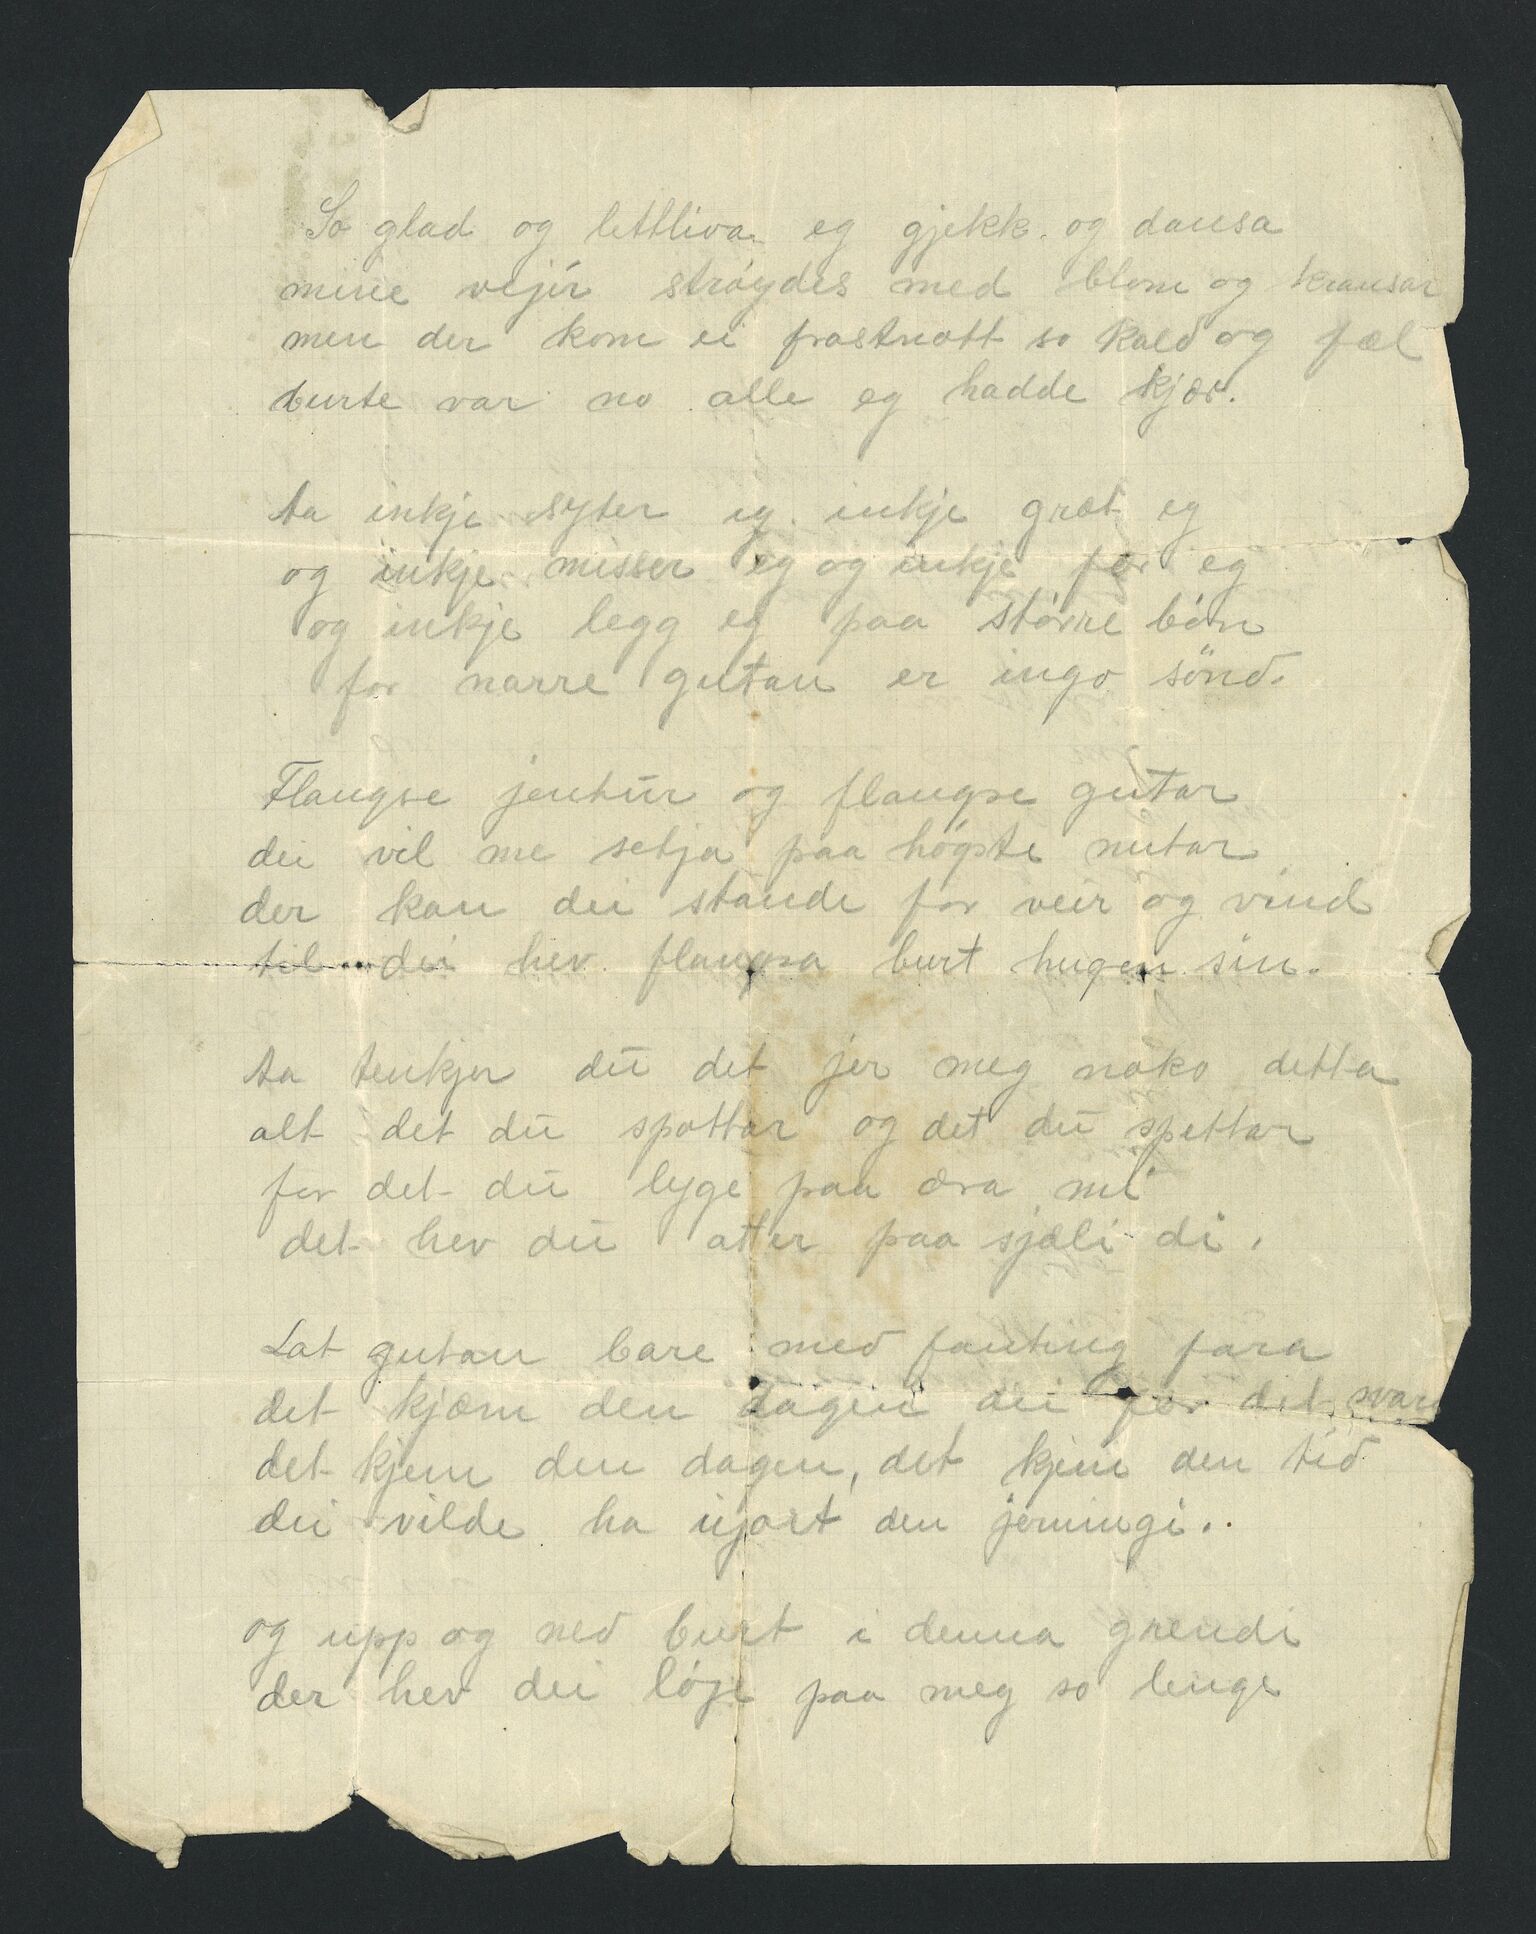 So glad og lettliva eg gjekk og dansa
mine vejir strøydes med blom og kransar
men der kom ei frostnott so kald og fæl
burte var no alle eg hadde kjær.

ta inkje syter eg inkje græt eg
og inkje misser eg og inkje fer eg
og inkje legg eg paa større bön
for narre gutan er ingo sönd.

Flaugse jentur og flaugse gutar
dei vil me setja paa högste nutar
der kan dei stande for veir og vind
til dei hev flaugsa burt hugen sin.

ta tenkjer dū det jer meg noko detta
alt det dū spottar og det dū spettar
for det dū lyge paa æra mi
det hev dū atter paa sjæli di.

Lat gutan bare med fanting fara
det kjæm den dagen dei fær det svara
det kjem den dagen, det kjem den tid
dei vilde ha ujort den jerningi.

og upp og ned burt i denna grendi
der hev dei löje paa meg so lenge